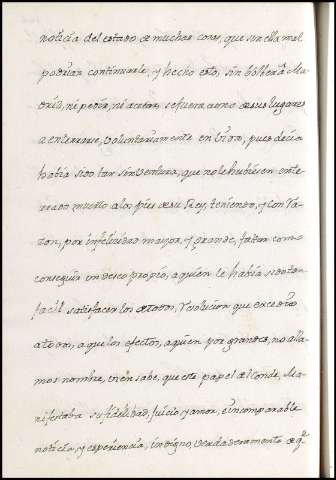 noticia del estado de muchas cosas, que sin ella mal
podrian continuarse, y hecho esto, sin bolber a Ma
drid, ni pedir, ni acetar, se fuera a uno de sus lugares
a enterrarse, voluntariamente en vida, pues decia
habia sido tan sin ventura, que no le hubiesen ente
rrado muerto a los pies de su Rey, teniendo, y con ra
zon, por infelicidad mayor, y grande, faltar como
conseguir un deseo propio, a quien le habia sido tan
facil satisfacer los de todos, resolucion que excedio
a todas, a que los efectos, aquien por grandes, no alla
mos nombre, bien sabe, que este papel del Conde, Ma
nifestaba su fidelidad, juicio, y amor, e incomparable
noticia, y esperiencia, indigno, verdaderamente de q.